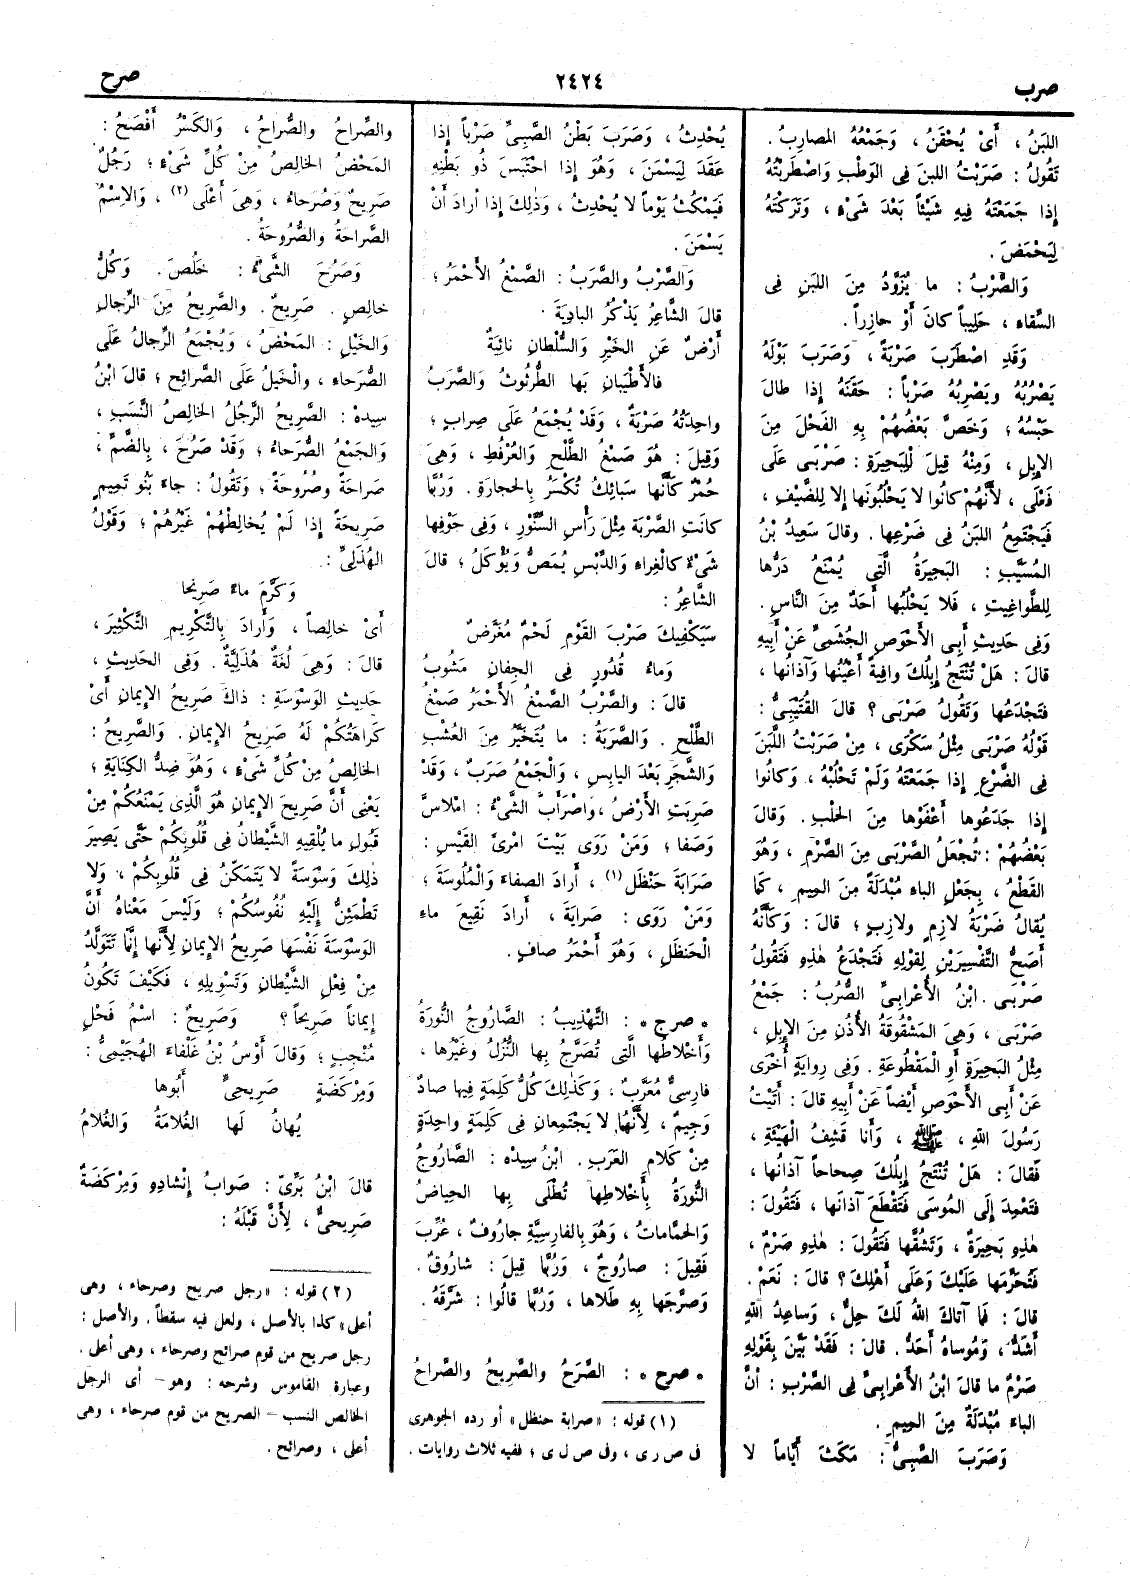 صرب
٢٤٢٤
صرح
اللبَنُ ، أَىْ يُحْقَنُ ، وَجَمْعُهُ المصارِبُ .
تَقُولُ : صَرَبْتُ اللبنَ فِى الوَطْبِ وَاصْطَرَبْتُهُ
إِذا جَمَعْتَهُ فِيهِ شَيْئاً بَعْدَ شَىْءٍ ، وَتَرَكْتَهُ
لِيَحْمَضَ .
وَالصَّرْبُ : ما يُزَوَّدُ مِنَ اللبَنِ فِى
السِّقاءِ ، حَلِيباً كانَ أَوْ حازِراً .
وَقَدِ اصْطَرَبَ صَرْبَةً ، وَصَرَبَ بَوْلَهُ
يَصْرُبُهُ ويَصْرِبُهُ صَرْباً : حَقَنَهُ إِذا طالَ
حَبْسُهُ ؛ وَخَصَّ بَعْضُهُمْ بِهِ الفَحْلَ مِنَ
الإِبِلِ ، وَمِنْهُ قِيلَ لِلْبَحِيرَةِ : صَرْبَى عَلَى
فَعْلَى ، لأَنَّهُمْ كانُوا لا يَحْلُبُونَها إِلا لِلضَّيْفِ ،
فَيَجْتَمِعُ اللبَنُ فِى ضَرْعِها . وقالَ سَعِيدُ بْنُ
المُسَيَّبِ : البَحِيرَةُ الَّتِى يُمْنَعُ دَرُّها
لِلطَّواغِيتِ ، فَلا يَحْلُبُها أَحَدٌ مِنَ النَّاسِ .
وَفِى حَدِيثِ أَبِى الأَحْوَصِ الجُشَمِىِّ عَنْ أَبِيهِ
قالَ : هَلْ تُنْتَجُ إِبِلُكَ وافِيةً أَعْيُنُها وَآذانُها ،
فَتَجْدَعُها وَتَقُولُ صَرْبَى ؟ قالَ القُتَيْبِىُّ :
قَوْلُهُ صَرْبَى مِثْلُ سَكْرَى ، مِنْ صَرَبْتُ اللَّبَنَ
فِى الضَّرْعِ إِذا جَمَعْتَهُ وَلَمْ تَحْلُبْهُ ، وَكانُوا
إِذا جَدَعُوها أَعْفَوْها مِنَ الحَلْبِ . وَقالَ
بَعْضُهُمْ : تُجْعَلُ الصَّرْبَى مِنَ الصَّرْمِ ، وَهُوَ
القَطْعُ ، بِجَعْلِ الباءِ مُبْدَلَةً مِنَ المِيمِ ، كَما
يُقالُ ضَرْبَةُ لازِمٍ ولازِبٍ ؛ قالَ : وَكَأَنَّهُ
أَصَحُّ التَّفْسِيرَيْنِ لِقَوْلِهِ فَتَجْدَعُ هٰذِهِ فَتَقُولُ
صَرْبَى . ابْنُ الأَعْرابِىِّ الصُّرُبُ : جَمْعُ
صَرْبَى ، وَهِىَ المَشْقُوقَةُ الأُذُنِ مِنَ الإِبِلِ ،
مِثْلُ البَحِيرَةِ أَوِ الْمَقْطُوعَةِ . وَفِى رِوايَةٍ أُخْرَى
عَنْ أَبِى الأَحْوَصِ أَيْضاً عَنْ أَبِيهِ قالَ : أَتَيْتُ
رَسُولَ اللهِ ، ﷺ ، وَأَنا قَشِفُ الْهَيْئَةِ ،
فَقالَ : هَلْ تُنْتَجُ إِبِلُكَ صِحاحاً آذانُها ،
فَتَعْمِدَ إِلَى المُوسَى فَتَقْطَعَ آذانَها ، فَتَقُولَ :
هٰذِهِ بَحِيرَةٌ ، وَتَشُقَّها فَتَقُولَ : هٰذِهِ صَرْمٌ ،
فَتُحَرِّمَها عَلَيْكَ وَعَلَى أَهْلِكَ ؟ قالَ : نَعَمْ .
قالَ : فَما آتاكَ اللهُ لَكَ حِلٌّ ، وَساعِدُ اللهِ
أَشَدُّ ، وَمُوساهُ أَحَدُّ . قالَ : فَقَدْ بَيَّنَ بِقَوْلِهِ
صَرْمٌ ما قالَ ابْنُ الأَعْرابِىِّ فِى الصَّرْبِ : أَنَّ
الباءَ مُبْدَلَةٌ مِنَ المِيمِ .
وَصَرَبَ الصَّبِىُّ : مَكَثَ أَيَّاماً لا
يُحْدِثُ ، وَصَرَبَ بَطْنُ الصَّبِىِّ صَرْباً إِذا
عَقَدَ لِيَسْمَنَ ، وَهُوَ إِذا احْتَبَسَ ذُو بَطْنِهِ
فَيَمْكُثُ يَوْماً لا يُحْدِثُ ، وَذٰلِكَ إِذا أَرادَ أَنْ
يَسْمَنَ .
وَالصَّرْبُ والصَّرَبُ : الصَّمْغُ الأَحْمَرُ ؛
قالَ الشَّاعِرُ يَذْكُرُ البادِيَةَ :
أَرْضٌ عَنِ الخَيْرِ وَالسُّلْطانِ نائِيَةٌ
فالأَطْيَبانِ بَها الطُّرْثُوثُ وَالصَّرَبُ
واحِدَتُهُ صَرْبَةٌ ، وَقَدْ يُجْمَعُ عَلَى صِرابٍ ؛
وَقِيلَ : هُوَ صَمْغُ الطَّلْحِ وَالعُرْفُطِ ، وَهِىَ
حُمْرٌ كَأَنَّها سَبائِكُ تُكْسَرُ بِالحِجارَةِ . وَرُبَّما
كانَتِ الصَّرْبَة مِثْلَ رَأْسِ السِّنَّوْرِ ، وَفِى جَوْفِها
شَىْءٌ كالْغِراءِ وَالدِّبْسِ يُمَصُّ وَيُؤْكَلُ ؛ قالَ
الشَّاعِرُ :
سَيَكْفِيكَ صَرْبَ القَوْمِ لَحْمٌ مُغَرَّضٌ
وَماءُ قُدُورٍ فِى الجِفانِ مَشُوبُ
قالَ : والصَّرْبُ الصَّمْغُ الأَحْمَرُ صَمْغُ
الطَّلْحِ . وَالصَّرَبَةُ : ما يُتَخَيَّرُ مِنَ العُشْبِ
وَالشَّجَرِ بَعْدَ اليابِسِ ، وَالْجَمْعُ صَرَبٌ ، وَقَدْ
صَرَبَتِ الأَرْضُ ، وَاصْرَأَبَّ الشَّىْءُ : امْلاسَّ
وَصَفا ؛ وَمَنْ رَوَى بَيْتَ امْرِئِ القَيْسِ :
صَرَابَةَ حَنْظَلِ (١) ، أَرادَ الصفاءَ وَالْمُلوسَةَ ؛
وَمَنْ رَوَى : صَرايَةَ ، أَرادَ نَقِيعَ ماءِ
الْحَنظَلِ ، وَهُوَ أَحْمَرُ صافٍ .
* صرج * : التَّهْذِيبُ : الصَّارُوجُ النُّورَةُ
وَأَخْلاطُها الَّتِى تُصَرَّجُ بِها النُّزُلُ وَغَيْرُها ،
فارِسِىٌّ مُعَرَّبٌ ، وَكَذٰلِكَ كُلُّ كَلِمَةٍ فِيها صادٌ
وَجِيمٌ ، لأَنَّهُما لا يَجْتَمِعانِ فِى كَلِمَةٍ واحِدَةٍ
مِنْ كَلامِ العَرَبِ . ابْنُ سِيدَه : الصَّارُوجُ
النُّورَةُ بِأَخْلاطِها تُطْلَى بِها الحِياضُ
وَالحَمَّاماتُ ، وَهُوَ بِالفارِسِيَّةِ جارُوفٌ ، عُرِّبَ
فَقِيلَ : صارُوجٌ ، وَرُبَّما قِيلَ : شارُوقٌ .
وَصَرَّجَها بِهِ طَلاها ، وَرُبَّما قالُوا : شَرَّقَهُ .
* صرح * : الصَّرَحُ والصَّرِيحُ والصَّراحُ
(١) قوله : «صرابة حنظل» أو رده الجوهرى
فى ص رى ، وفى ص ل ى ؛ ففيه ثلاث روايات .
والصِّراحُ والصُّراحُ ، وَالكَسْرُ أَفْصَحُ :
المَحْضُ الخالِصُ مِنْ كُلِّ شَىْءٍ ؛ رَجُلٌ
صَرِيحٌ وَصُرَحاءُ ، وَهِىَ أَعْلَى (٢) ، وَالاسْمُ
الصَّراحَةُ والصُّرُوحَةُ .
وَصَرُحَ الشَّىْءُ : خَلُصَ . وَكُلُّ
خالِصٍ . صَرِيحٌ . والصَّرِيحُ مِنَ الرِّجالِ
وَالخَيْلِ : المَحْضُ ، وَيُجْمَعُ الرِّجالُ عَلَى
الصُّرَحاءِ ، والْخَيْلُ عَلَى الصَّرائِحِ ؛ قالَ ابْنُ
سِيدَه : الصَّرِيحُ الرَّجُلُ الخالِصُ النَّسَبِ ،
وَالجَمْعُ الصُّرَحاءُ ؛ وَقَدْ صَرُحَ ، بِالضَّمِّ ،
صَراحَةً وصُرُوحةً ؛ وَتَقُولُ : جاءَ بَنُو تَمِيمٍ
صَرِيحَةً إِذا لَمْ يُخالِطْهُمْ غَيْرُهُمْ ؛ وَقَوْلُ
الهُذَلِىِّ :
وَكَرَّمَ ماءً صَرِيحَا
أَىْ خالِصاً ، وَأَرادَ بِالتَّكْرِيمِ التَّكْثِيرَ ،
قالَ : وَهِىَ لُغَةٌ هُذَلِيَّةٌ . وَفِى الحَدِيثِ ،
حَدِيثِ الوَسْوَسَةِ : ذاكَ صَرِيحُ الإِيمانِ أَىْ
كَراهَتُكُمْ لَهُ صَرِيحُ الإِيمانِ . والصَّرِيحُ :
الخالِصُ مِنْ كُلِّ شَىْءٍ ، وَهُوَ ضِدُّ الكِنايَةِ ؛
يَعْنِى أَنَّ صَرِيحَ الإِيمانِ هُوَ الَّذِى يَمْنَعُكُمْ مِنْ
قَبُولِ ما يُلْقِيهِ الشَّيْطانُ فِى قُلُوبِكُمْ حَتَّى يَصِيرَ
ذٰلِكَ وَسْوَسَةً لا يَتَمَكَّنُ فِى قُلُوبِكُمْ ، وَلا
تَطْمَئِنُّ إِلَيْهِ نُفُوسُكُمْ ؛ وَلَيْسَ مَعْناهُ أَنَّ
الوَسْوَسَةَ نَفْسَها صَرِيحُ الإِيمانِ لأَنَّها إِنَّما تَتَوَلَّدُ
مِنْ فِعْلِ الشَّيْطانِ وَتَسْوِيلِهِ ، فَكَيْفَ تَكُونُ
إِيماناً صَرِيحاً ؟ وَصَرِيحٌ : اسْمُ فَحْلٍ
مُنْجِبٍ ؛ وَقالَ أَوْسُ بْنُ غَلْفاءَ الهُجَيْمِىُّ :
وَمِرْكَضَةٍ صَرِيحِىٍّ أَبُوها
يُهانُ لَها الغُلامَةُ وَالغُلامُ
قالَ ابْنُ بَرِّىّ : صَوابُ إِنْشادِهِ وَمِرْكَضَةٌ
صَرِيحِىٌّ ، لِأَنَّ قَبْلَهُ :
(٢) قوله : «رجل صريح وصرحاء ، وهى
أعلى» كذا بالأصل ، ولعل فيه سقطاً . والأصل :
رجل صريح من قوم صرائح وصرحاء ، وهى أعلى .
وعبارة القاموس وشرحه : وهو – أى الرجل
الخالص النسب – الصريح من قوم صرحاء ، وهى
أعلى ، وصرائح .